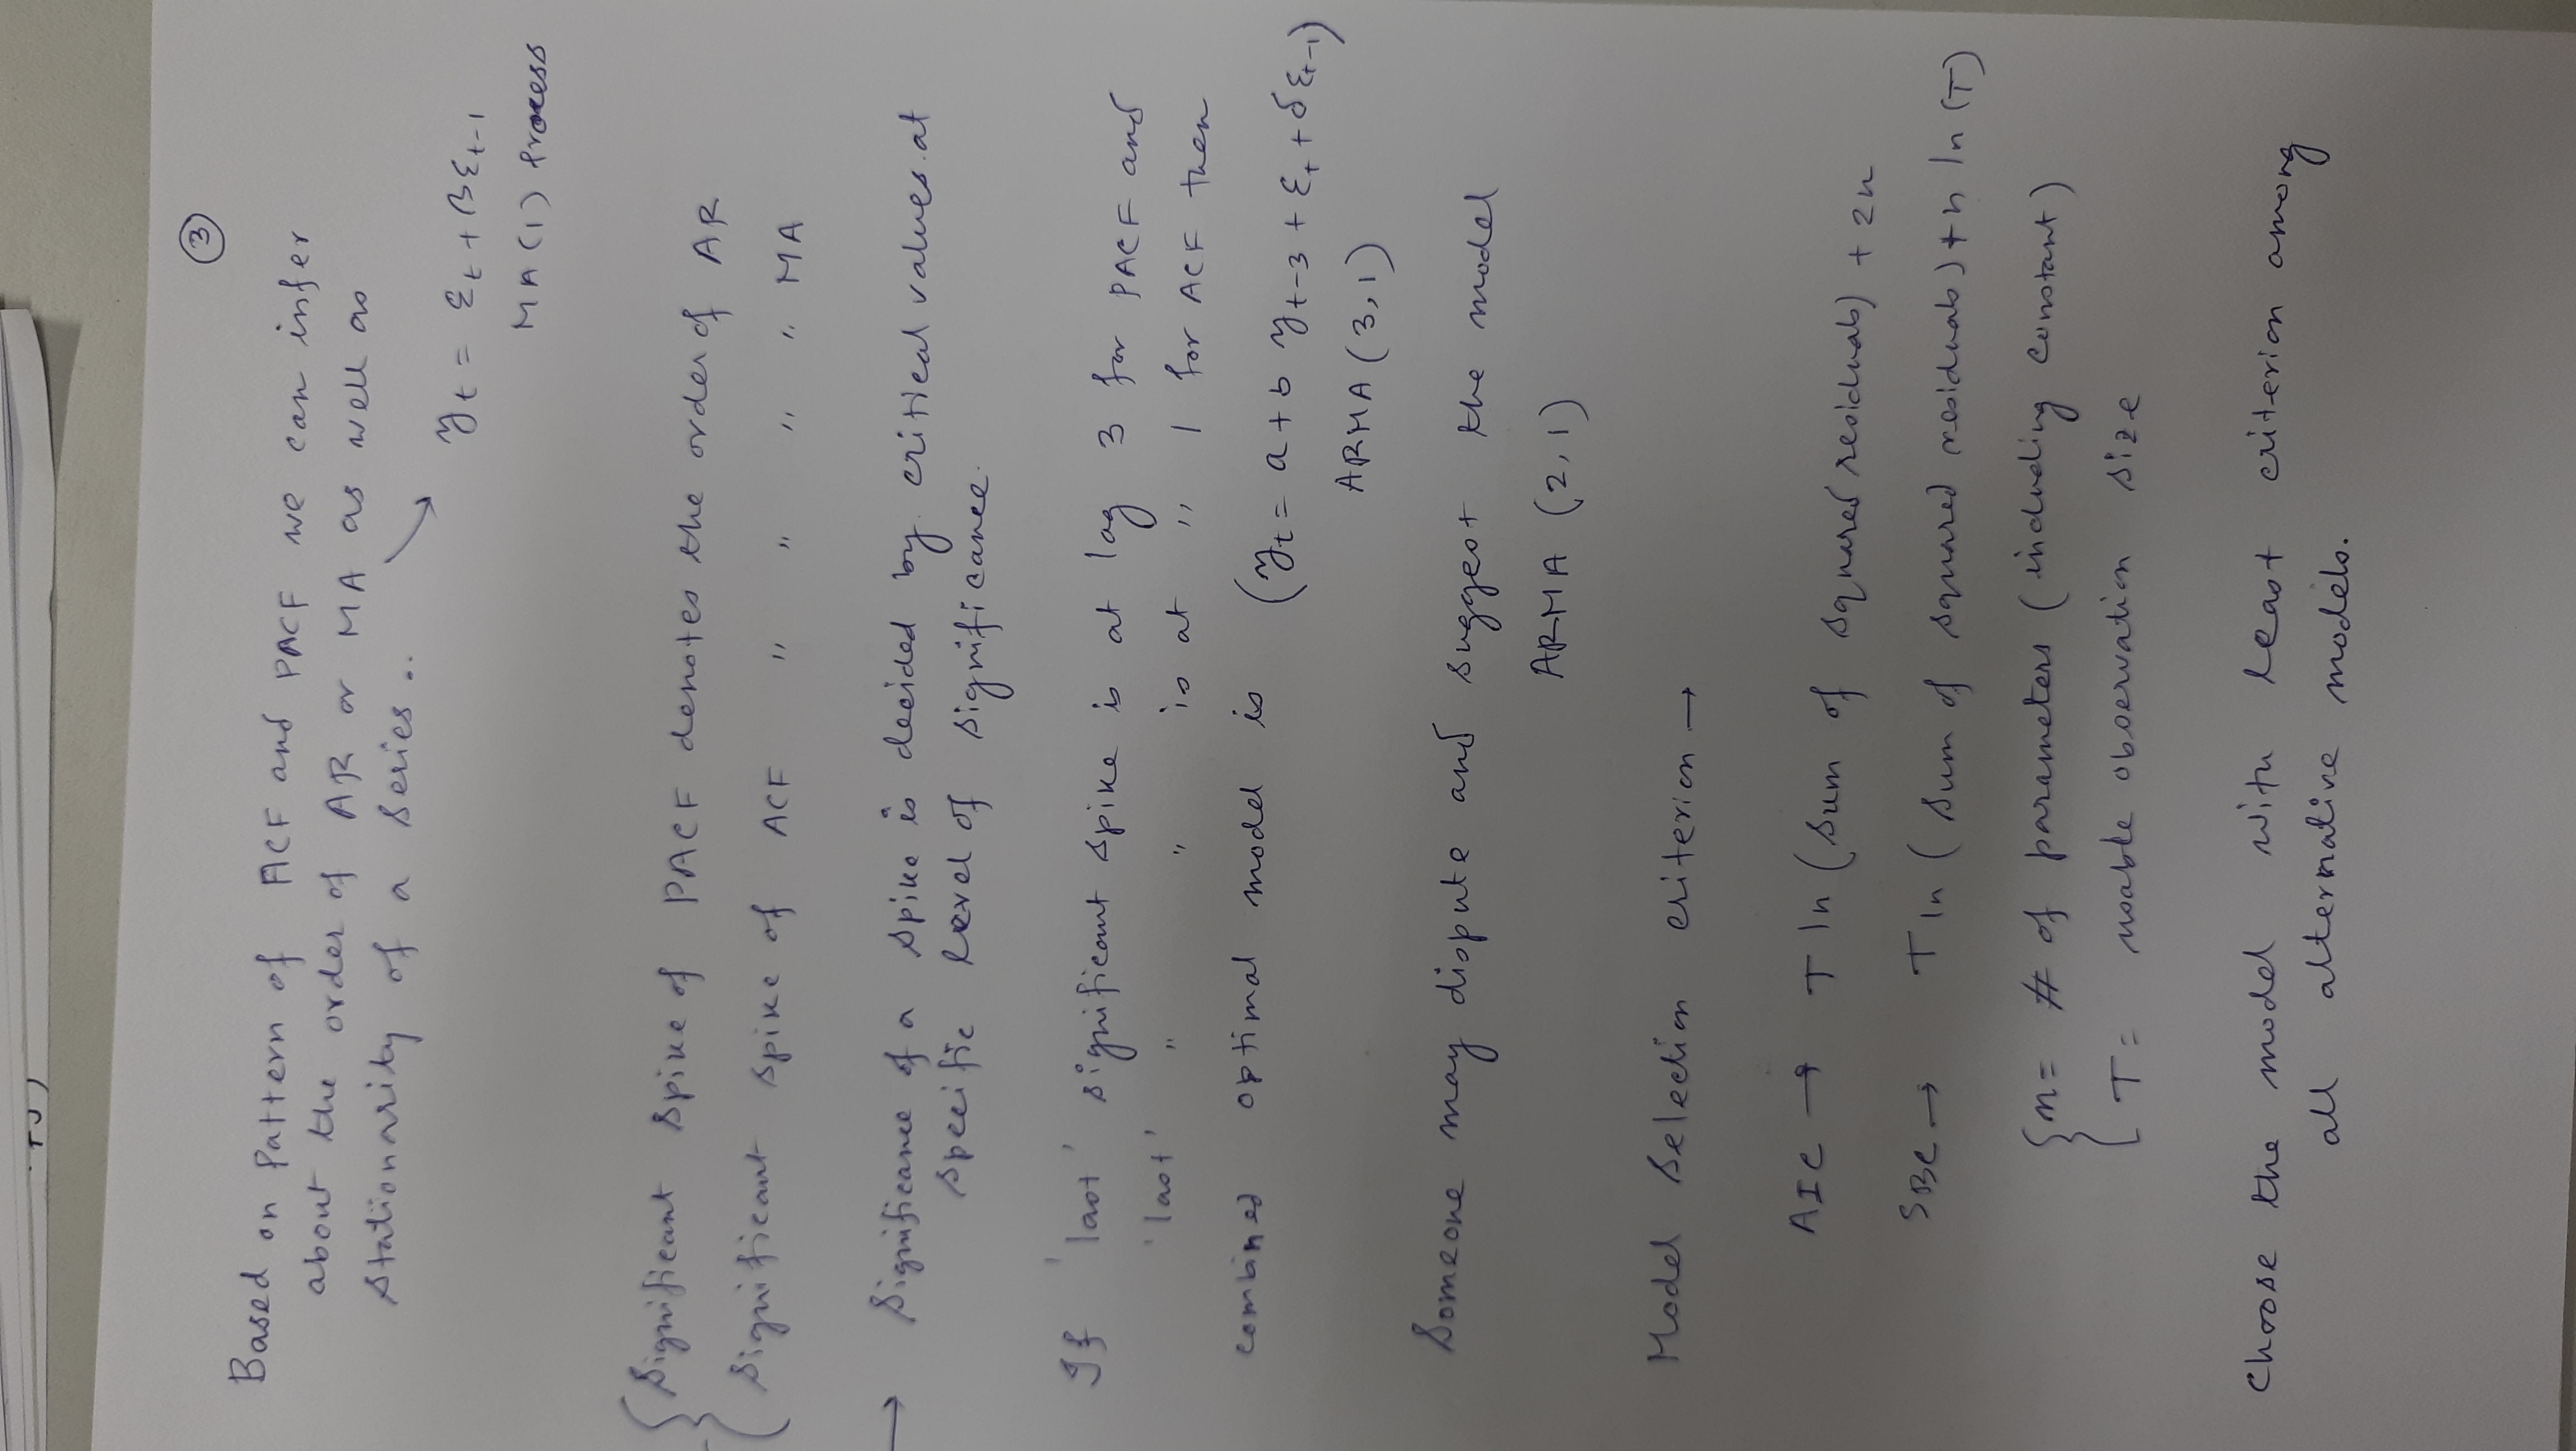 ③
Based on Pattern of ACF and PACF we can infer
about the order of AR or MA as well as
stationarity of a series ..
yt = εt + βεt-1
MA(1) Process
Significant spike of PACF denotes the order of AR
Significant spike of ACF " " " " MA
→ Significance of a spike is decided by critical values at
specific level of significance.
If 'last' significant spike is at lag 3 for PACF and
'last' " " is at " 1 for ACF then
combined optimal model is (yt = a + b yt-3 + εt + δεt-1)
ARMA (3,1)
Someone may dispute and suggest the model
ARMA (2,1)
Model Selection criterion →
AIC → T ln (sum of squared residuals) + 2n
SBC → T ln (sum of squared residuals) + n ln (T)
n = # of parameters (including constant)
T = usable observation size
Choose the model with least criterion among
all alternative models.